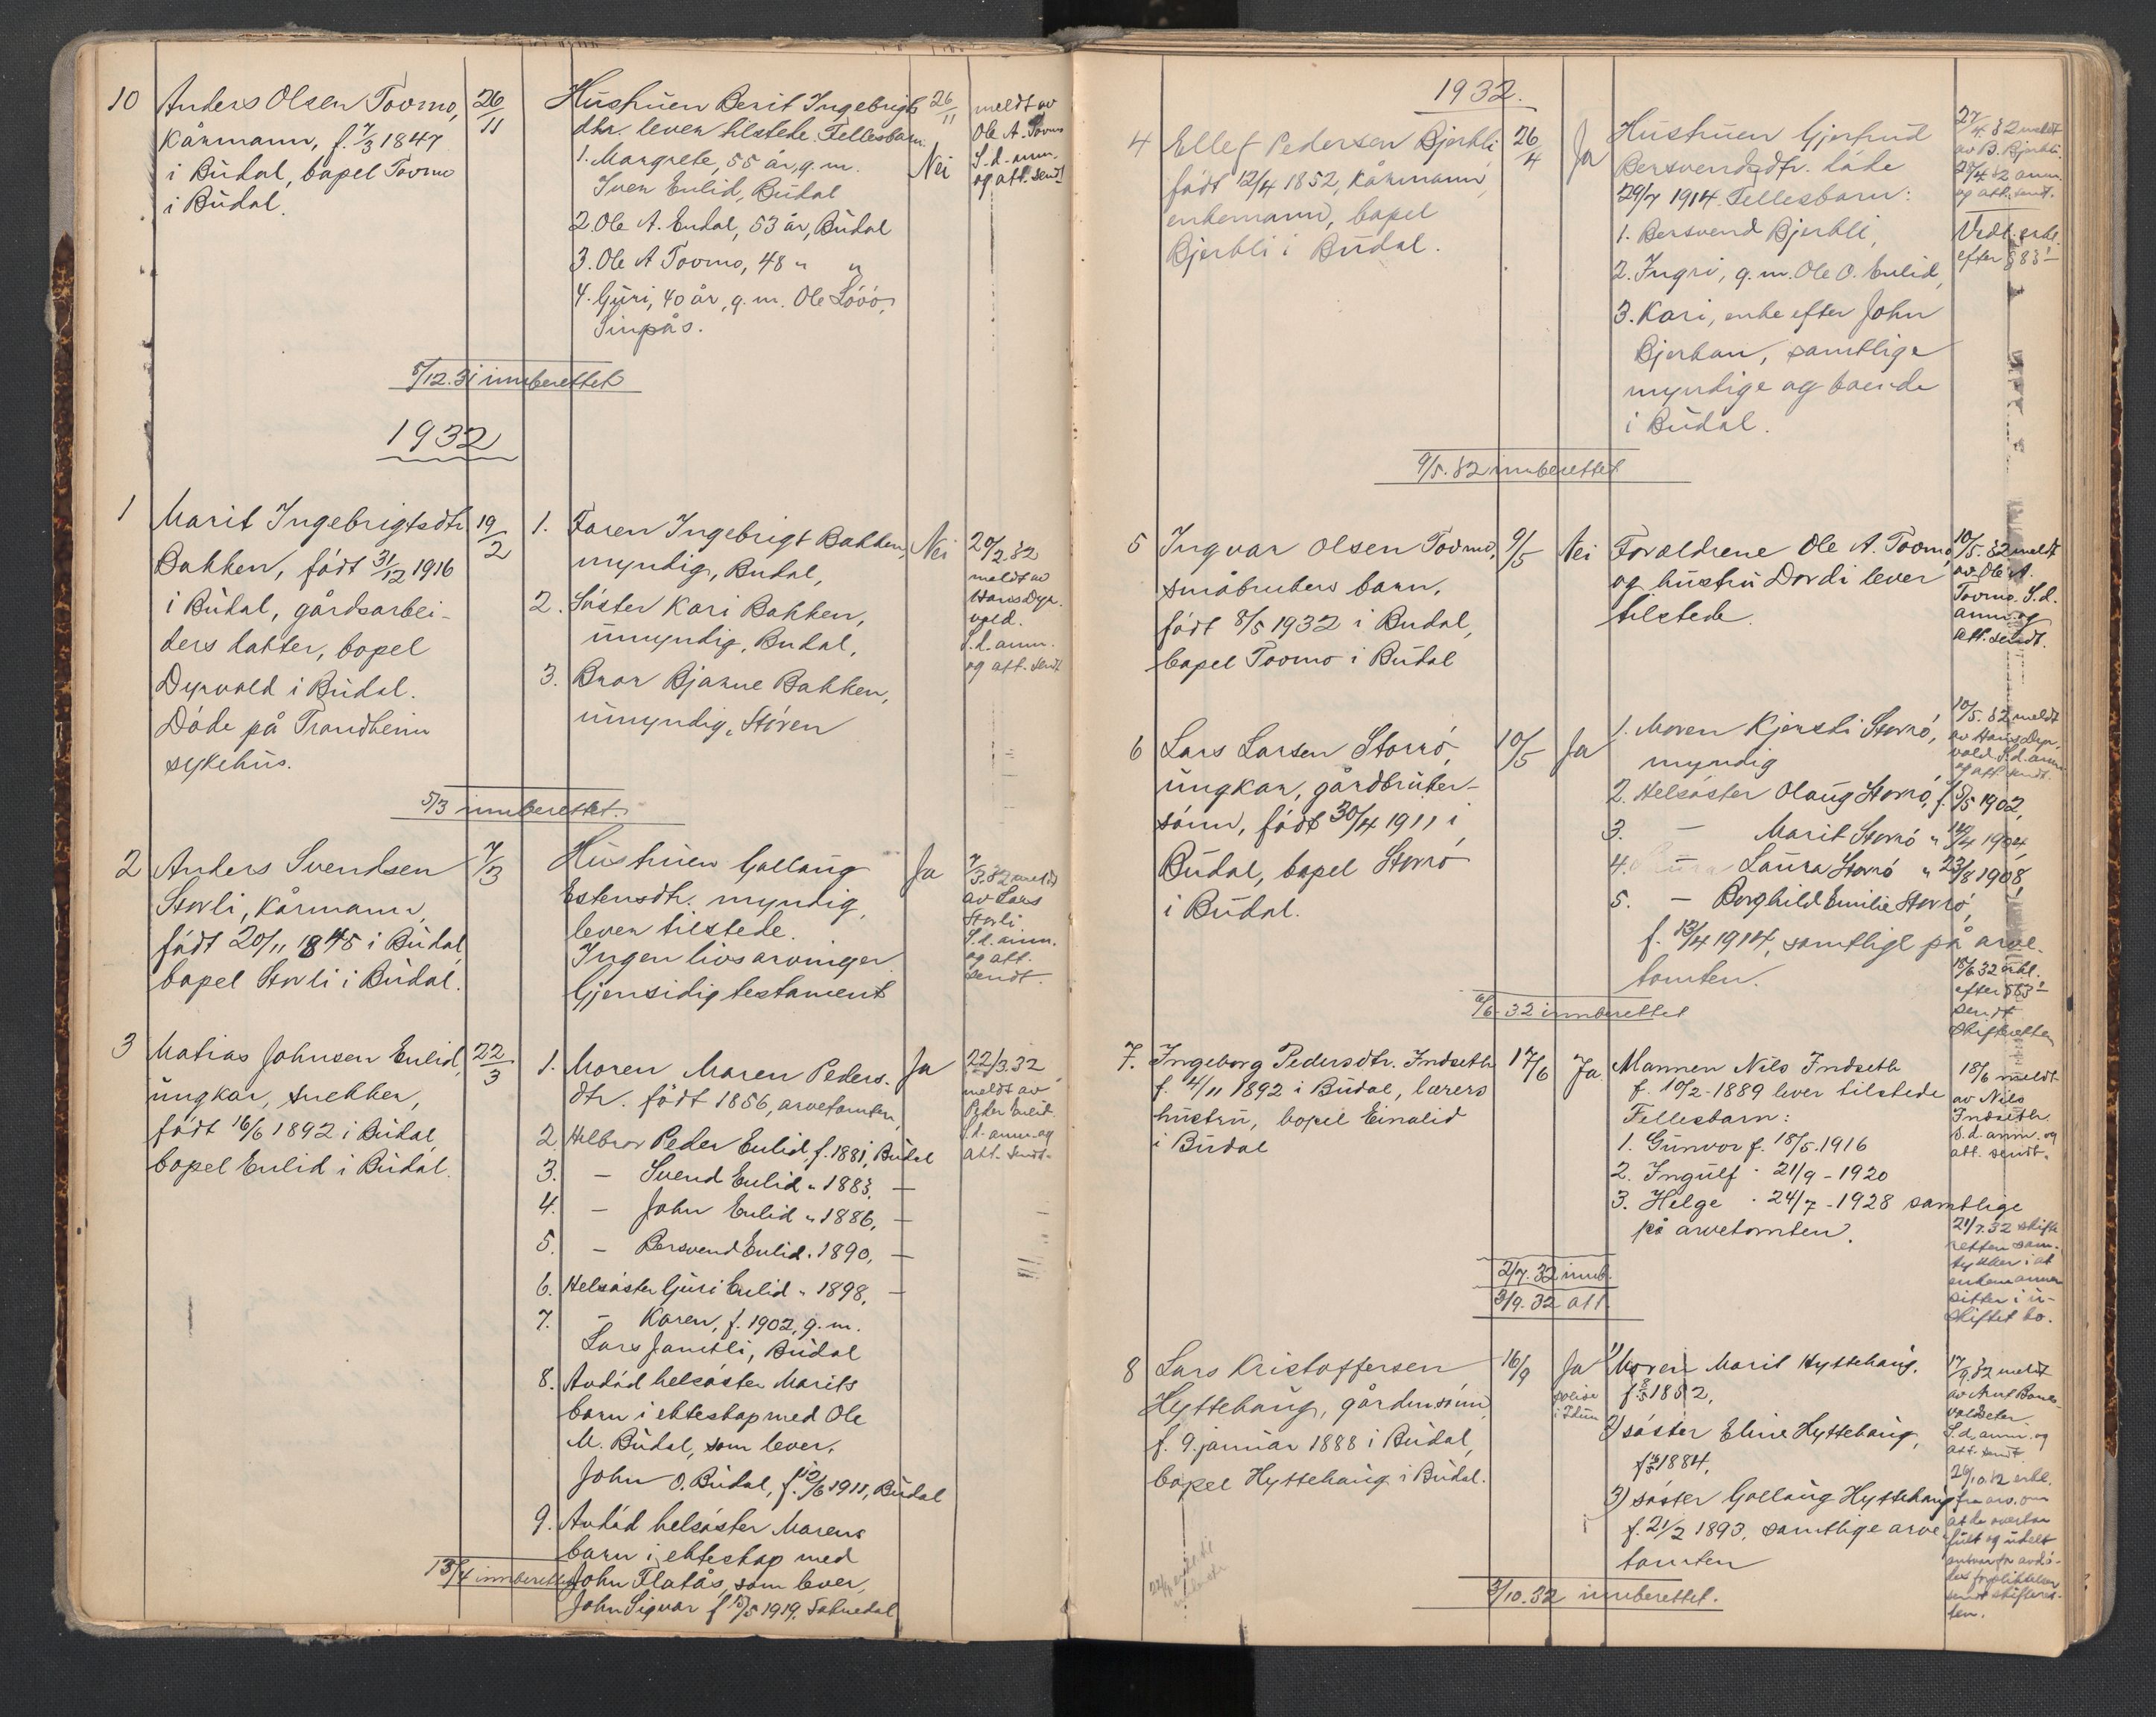 10
Anders Olsen Tovmo,
Kårmann, f. 7/3 1847
i Budal, bopel Tovmo
i Budal.
26/11
Hustruen Berit Ingebrigts
dtr. lever tilstede. Fellesbarn:
1. Margrete, 55 år, g. m.
Sven Enlid, Budal
2. Ole A. Endal, 53 år, Budal
3. Ole A Tovmo, 48 " "
4. Guri, 40 år, g. m. Ole Lóóv,
Singsås.
26/11
Nei
meldt av
Ole A. Tovmo
S. d. anm.
og att. sendt
5/12.31 innberettet
1932
1
Marit Ingebrigtsdtr
Bakken, födt 31/12 1916
i Budal, gårdsarbei-
ders datter, bopel
Dyrvold i Budal.
Döde på Trondheim
sykehus.
19/2
1. Faren Ingebrigt Bakken,
myndig, Budal,
2. Söster Kari Bakken,
umyndig, Budal,
3. Bror Bjarne Bakken,
umyndig, Stören
Nei
20/2 32
meldt av
Hans Dyr-
vold.
S. d. anm.
og att. sendt
5/3 innberettet.
2
Anders Svendsen
Storli, Kårmann,
födt 20/11 1845 i Budal,
bopel Storli i Budal.
7/3
Hustruen Gollaug
Estensdtr. myndig,
lever tilstede.
Ingen livsarvinger.
Gjensidig testament
Ja
7/3.32 meldt
av Lars
Storli
S. d. anm.
og att.
sendt.
3
Matias Johnsen Enlid,
ungkar, snekker,
födt 16/6 1892 i Budal,
bopel Enlid i Budal.
22/3
1. Moren Maren Peders-
dtr. födt 1856, arvetomten,
2. Helbror Peder Enlid, f. 1881, Budal
3. — Svend Enlid " 1883, —
4. — John Enlid " 1886, —
5. — Bersvend Enlid " 1890, —
6. Helsöster Guri Enlid " 1898, —
7. — Karen, f. 1902, g. m.
Lars Jamtli, Budal
8. Avdöd helsöster Marits
barn i ekteskap med Ole
M. Budal, som lever,
John O. Budal, f. 12/6 1911, Budal
9. Avdöd helsöster Marens
barn i ekteskap med
John Flatås, som lever,
John Sigvar f 15/5 1919, Soknedal
Ja
22/3.32
meldt av
Peder Enlid.
S. d. anm. og
att. sendt.
13/4 innberettet
1932.
4
Ellef Pedersen Bjerkli
födt 12/4 1852, Kårmann,
enkemann, bopel
Bjerkli i Budal.
26/4
Ja
Hustruen Gjertrud
Bersvendsdtr. döde
29/7 1914. Fellesbarn:
1. Bersvend Bjerkli,
2. Ingri, g. m. Ole O. Enlid,
3. Kari, enke efter John
Bjerkan, samtlige
myndige og boende
i Budal.
27/4. 32 meldt
av B. Bjerkli.
28/4 32 anm.
og att. sendt.
Vedl. erkl.
efter § 83
9/5. 32 innberettet
5
Ingvar Olsen Tovmo,
småbrukers barn,
födt 8/5 1932 i Budal,
bopel Tovmo i Budal
9/5
Nei
Foreldrene Ole A. Tovmo
og hustru Dordi lever
tilstede.
10/5. 32 meldt
av Ole A.
Tovmo. S. d.
anm. og
att. sendt.
6
Lars Larsen Storrö,
ungkar, gårdbruker-
sönn, födt 30/4 1911 i
Budal, bopel Storrö
i Budal.
10/5
Ja
1. Moren Kjersti Storrö,
myndig
2. Helsöster Olaug Storrö, f. 5/5 1902,
3. — Marit Storrö " 12/4 1904,
4. Laura Storrö " 23/8 1908,
5. — Borghild Emilie Storrö,
f. 13/4 1914, samtlige på arve-
tomten.
10/5. 32 meldt
av Hans Dyr-
vold S. d. anm.
og att. sendt.
18/6 32 erkl.
efter § 83
sendt
skifteretten
6/6. 32 innberettet
7.
Ingeborg Pedersdtr. Indseth
f. 4/11 1892 i Budal, lærers
hustru, bopel Einalid
i Budal
17/6
Ja.
Mannen Nils Indseth
f. 10/2 - 1889 lever tilstede
Fellesbarn:
1. Gunvor f. 18/5. 1916
2. Ingulf " 21/9 - 1920
3. Helge " 24/7 - 1928 samtlige
på arvetomten.
18/6 meldt
av Nils
Indseth.
S. d. anm. og
att. sendt.
21/7.32 skifte
retten sam-
tykker i at
enkemannen
sitter i u-
skiftet bo.
2/7. 32 innb.
3/9. 32 att.
8
Lars Kristoffersen
Hyttehaug, gårdmsönn
f. 9. januar 1888 i Budal,
bopel Hyttehaug i Budal.
16/9
Ja
1) Moren Marit Hyttehaug.
f. 8/5 1852,
2) söster Eline Hyttehaug,
1884,
3) söster Gollaug Hyttehaug
f. 21/2 1893, samtlige arve-
tomten
17/9. 32 meldt
av Arnt Bones-
voldseter.
S. d. anm. og
att. sendt.
29/10.32 erkl.
fra arv. om
at de overtar
fult og udelt
ansvar for avdö-
des forpliktelser
sendt skifteret-
ten.
3/10.32 innberettet.